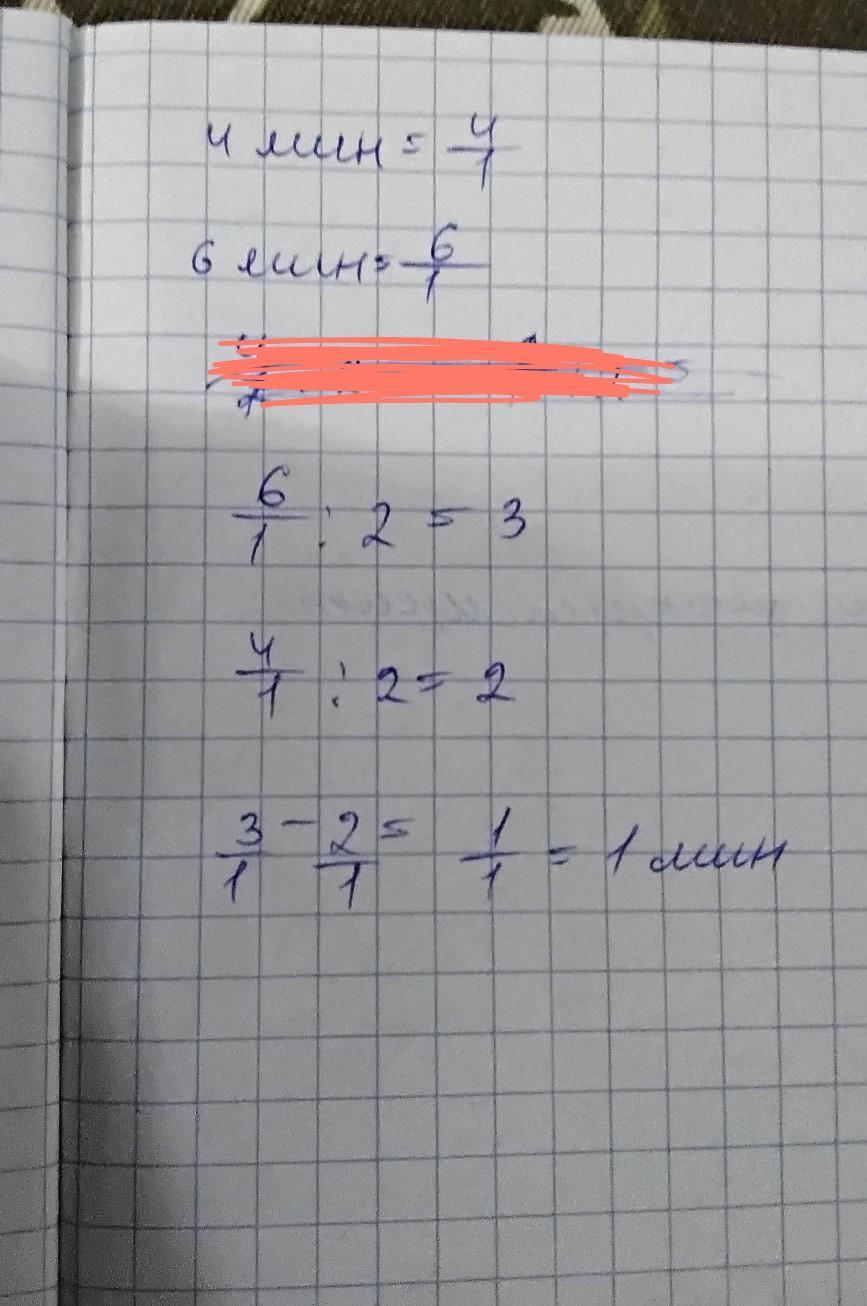 4 мин = 4/1
6 мин = 6/1
6/1 : 2 = 3
4/1 : 2 = 2
3/1 - 2/1 = 1/1 = 1 мин